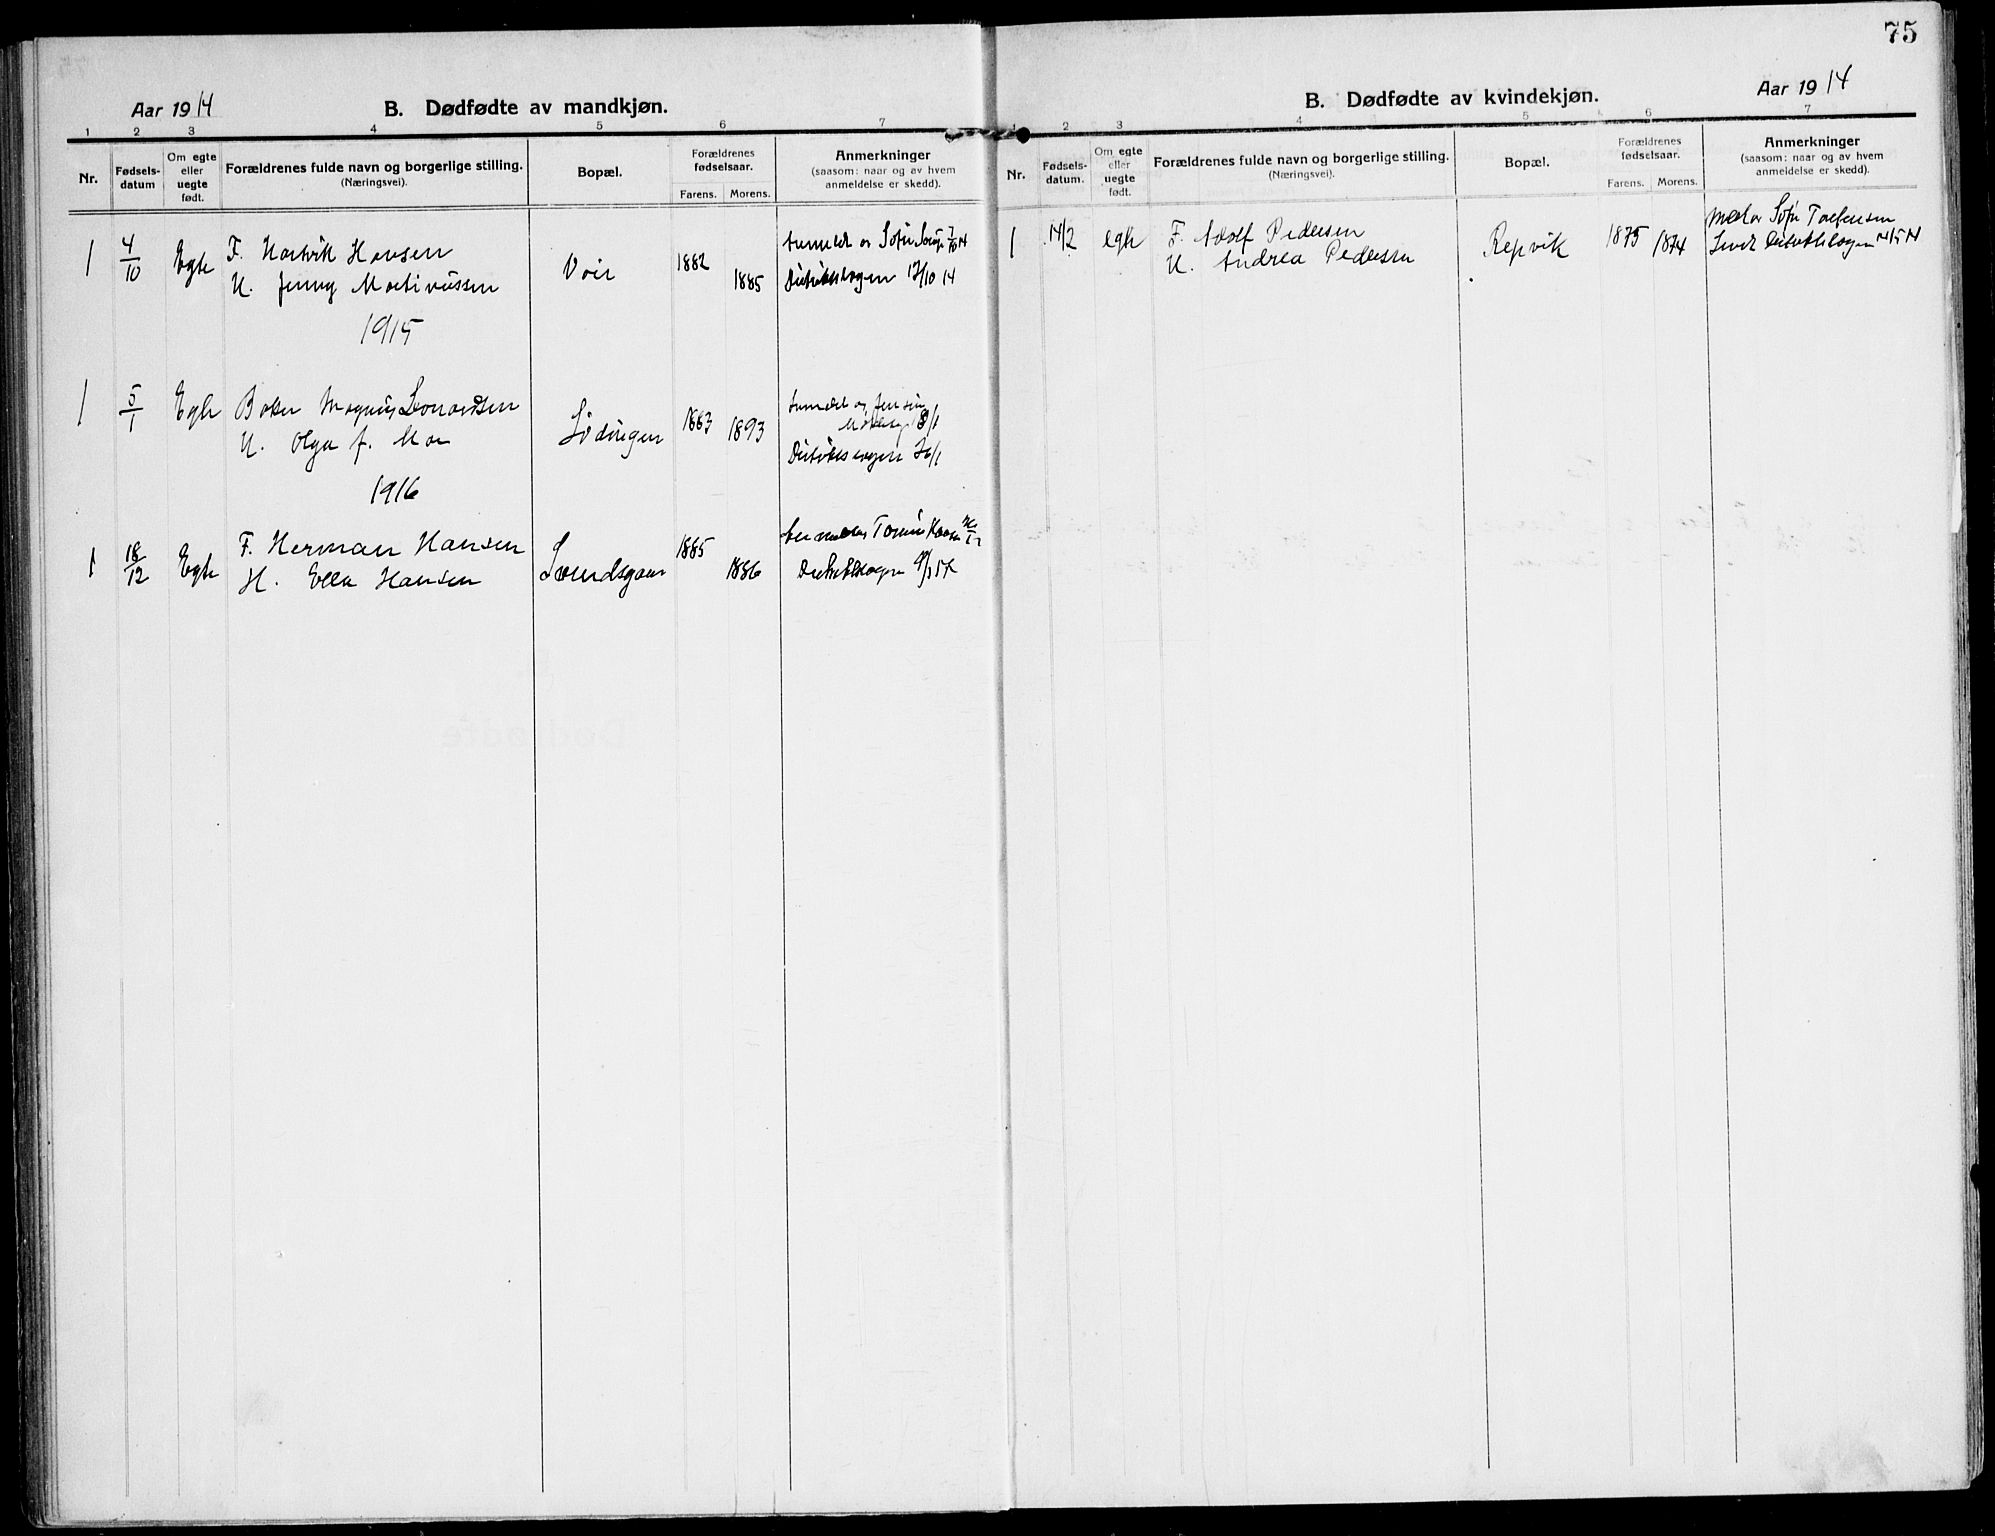 75
Aar 1914
B. Dødfødte av mandkjøn.
1 2 3 4 5 6 7
Nr.
Fødsels-
datum
Om egte
eller
uegte
født.
Forældrenes fulde navn og borgerlige stilling.
(Næringsvei).
Bopæl.
Forældrenes
fødselsaar.
Farens. Morens.
Anmerkninger
(saasom: naar og av hvem
anmeldelse er skedd).
1 4/10 Egte F. Hartvik Hansen
H. Jenny Martinussen
1882
1885
Distriktslægen 12/10 14
1915
1 5/1 Egte Baker Magnus Leonardsen
H. Olga J. Moe
Lødingen 1883 1893
Distriktslægen
1916
1 18/12 Egte F. Herman Hansen
H. Ella Hansen
1885
1886
Distriktslægen
Aar 1914
B. Dødfødte av kvindekjøn.
1 2 3 4 5 6 7
Nr.
Fødsels-
datum.
Om egte
eller
uegte
født.
Forældrenes fulde navn og borgerlige stilling.
(Næringsvei).
Bopæl.
Forældrenes
fødselsaar.
Farens. Morens.
Anmerkninger
(saasom: naar og av hvem
anmeldelse er skedd).
1 14/2 egte F. Adolf Pedersen
H. Andrea Pedersen
Repvik 1875 1874
Distriktslægen